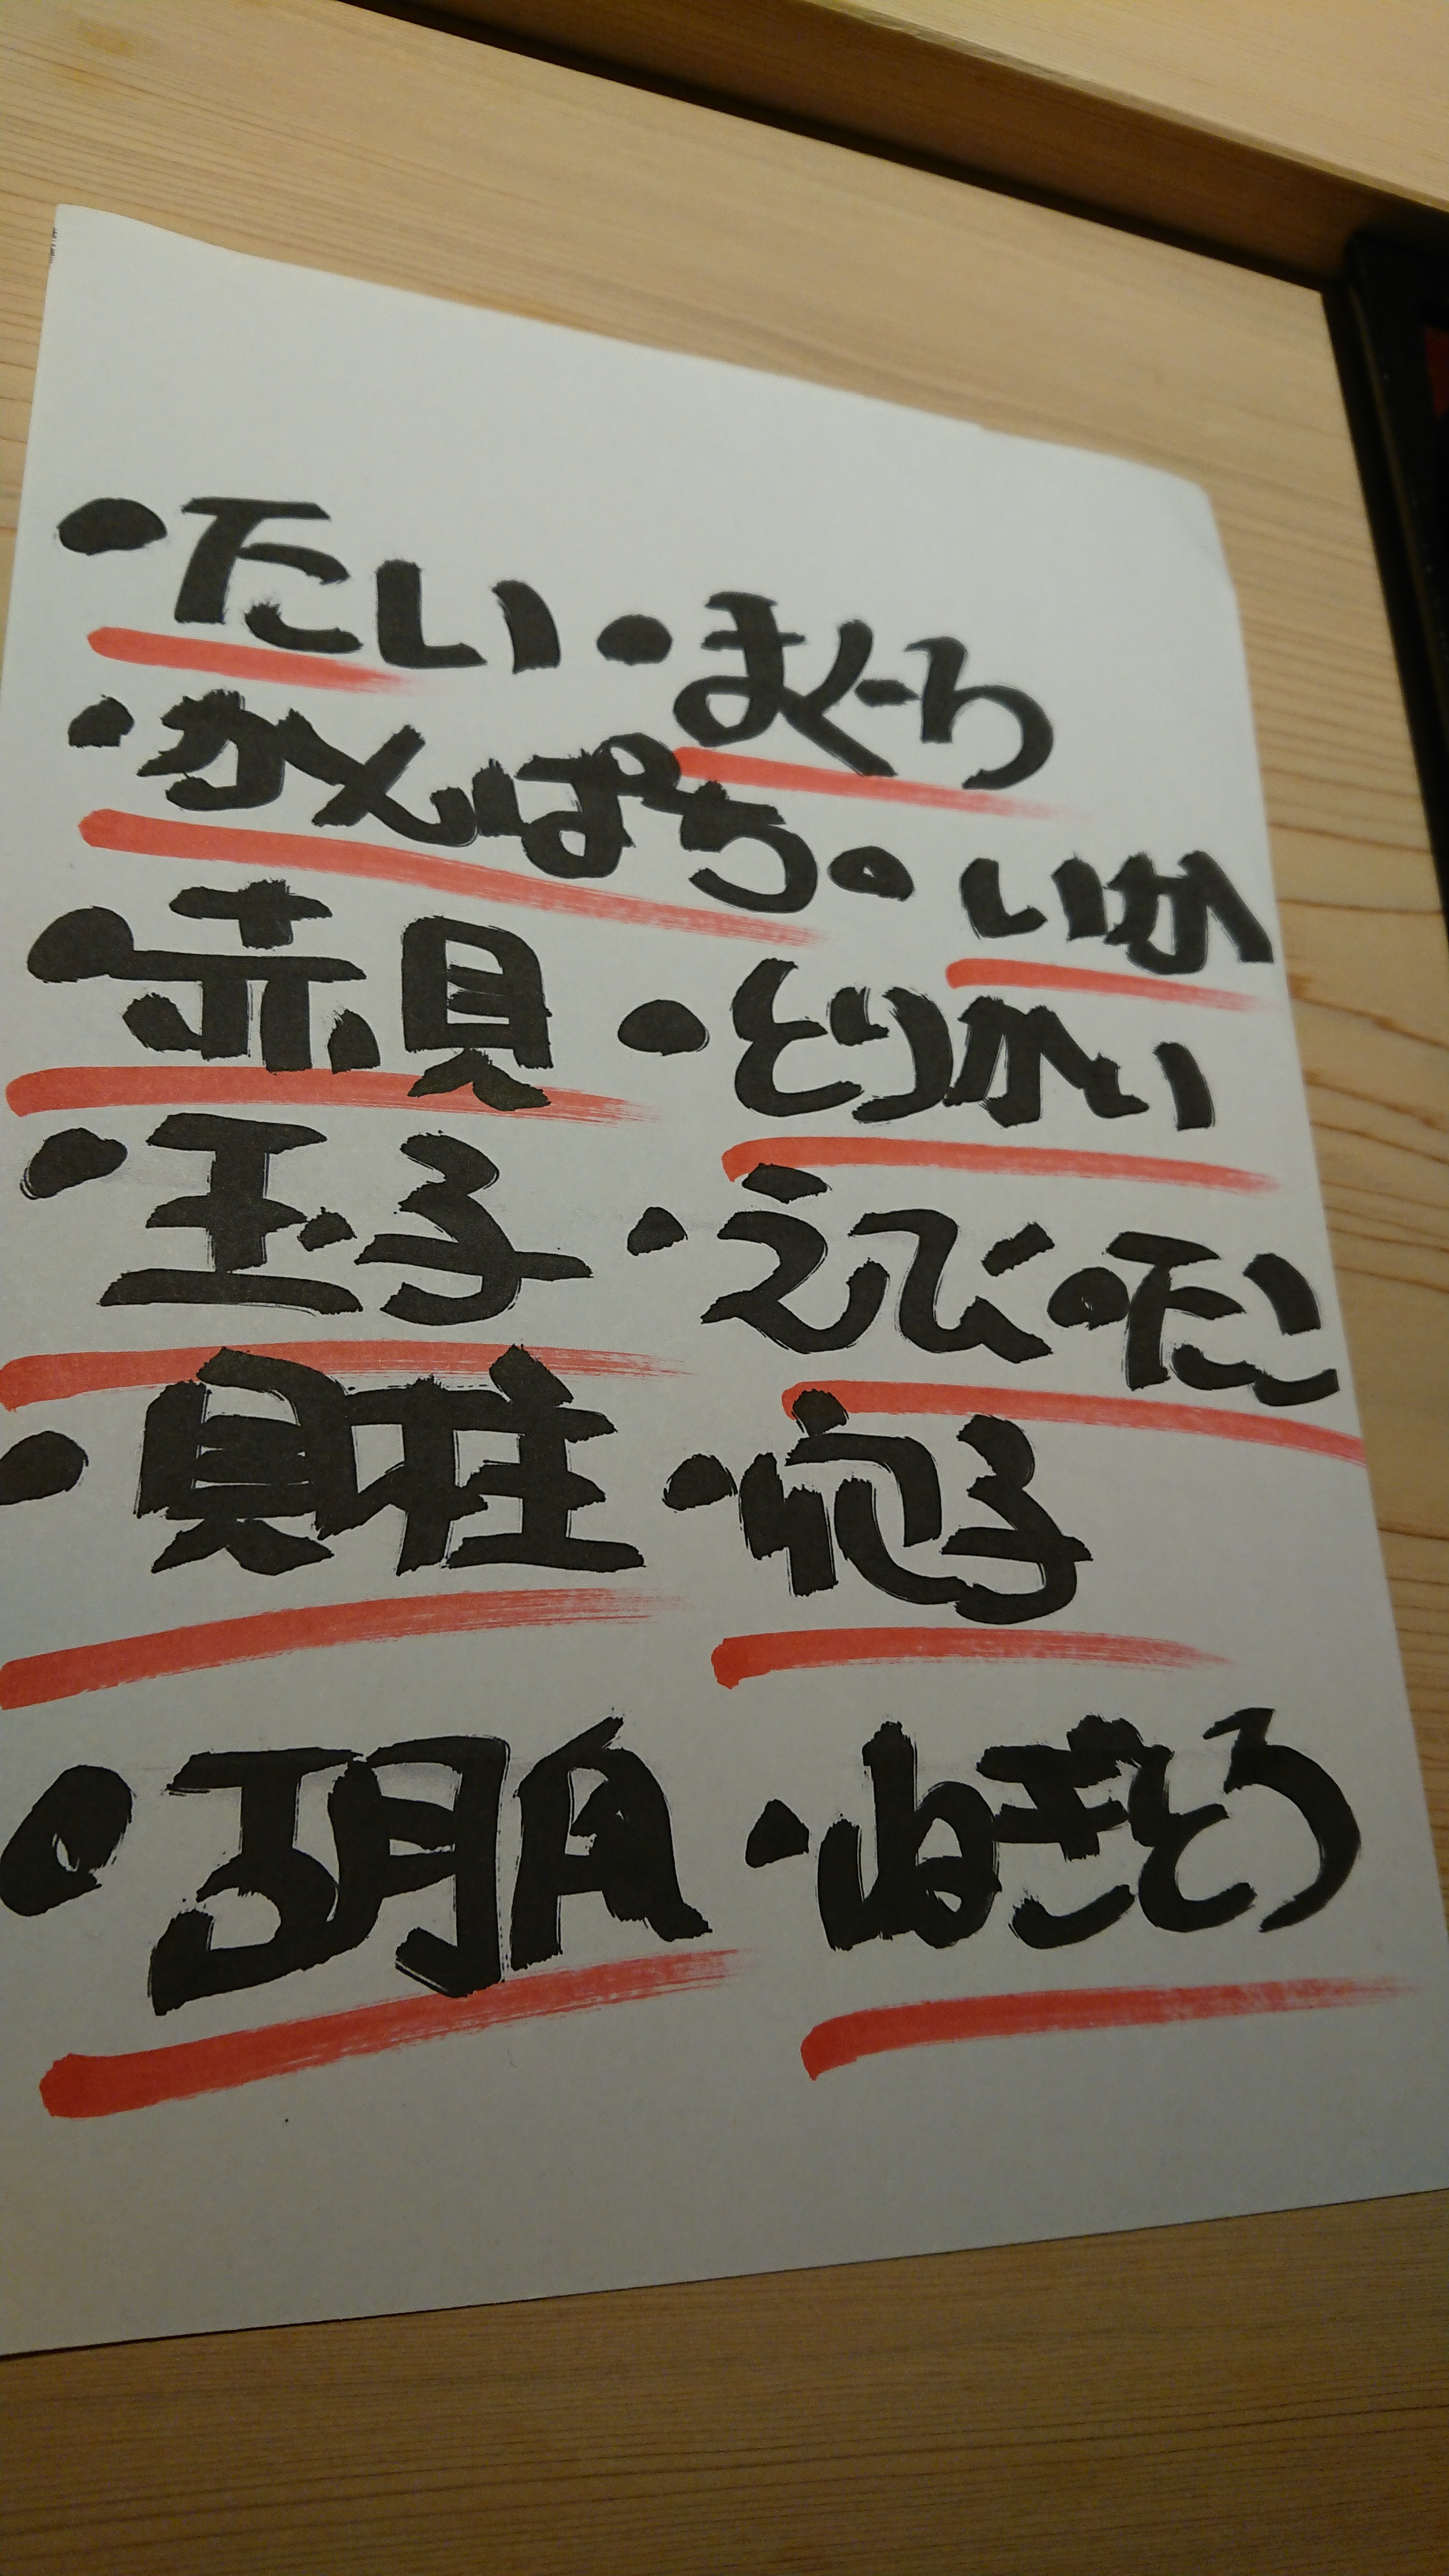 ・たい ・まぐろ
・かんぱち ・いか
・赤貝 ・とりかい
・玉子 ・えび ・たこ
・貝柱
・ねぎとろ